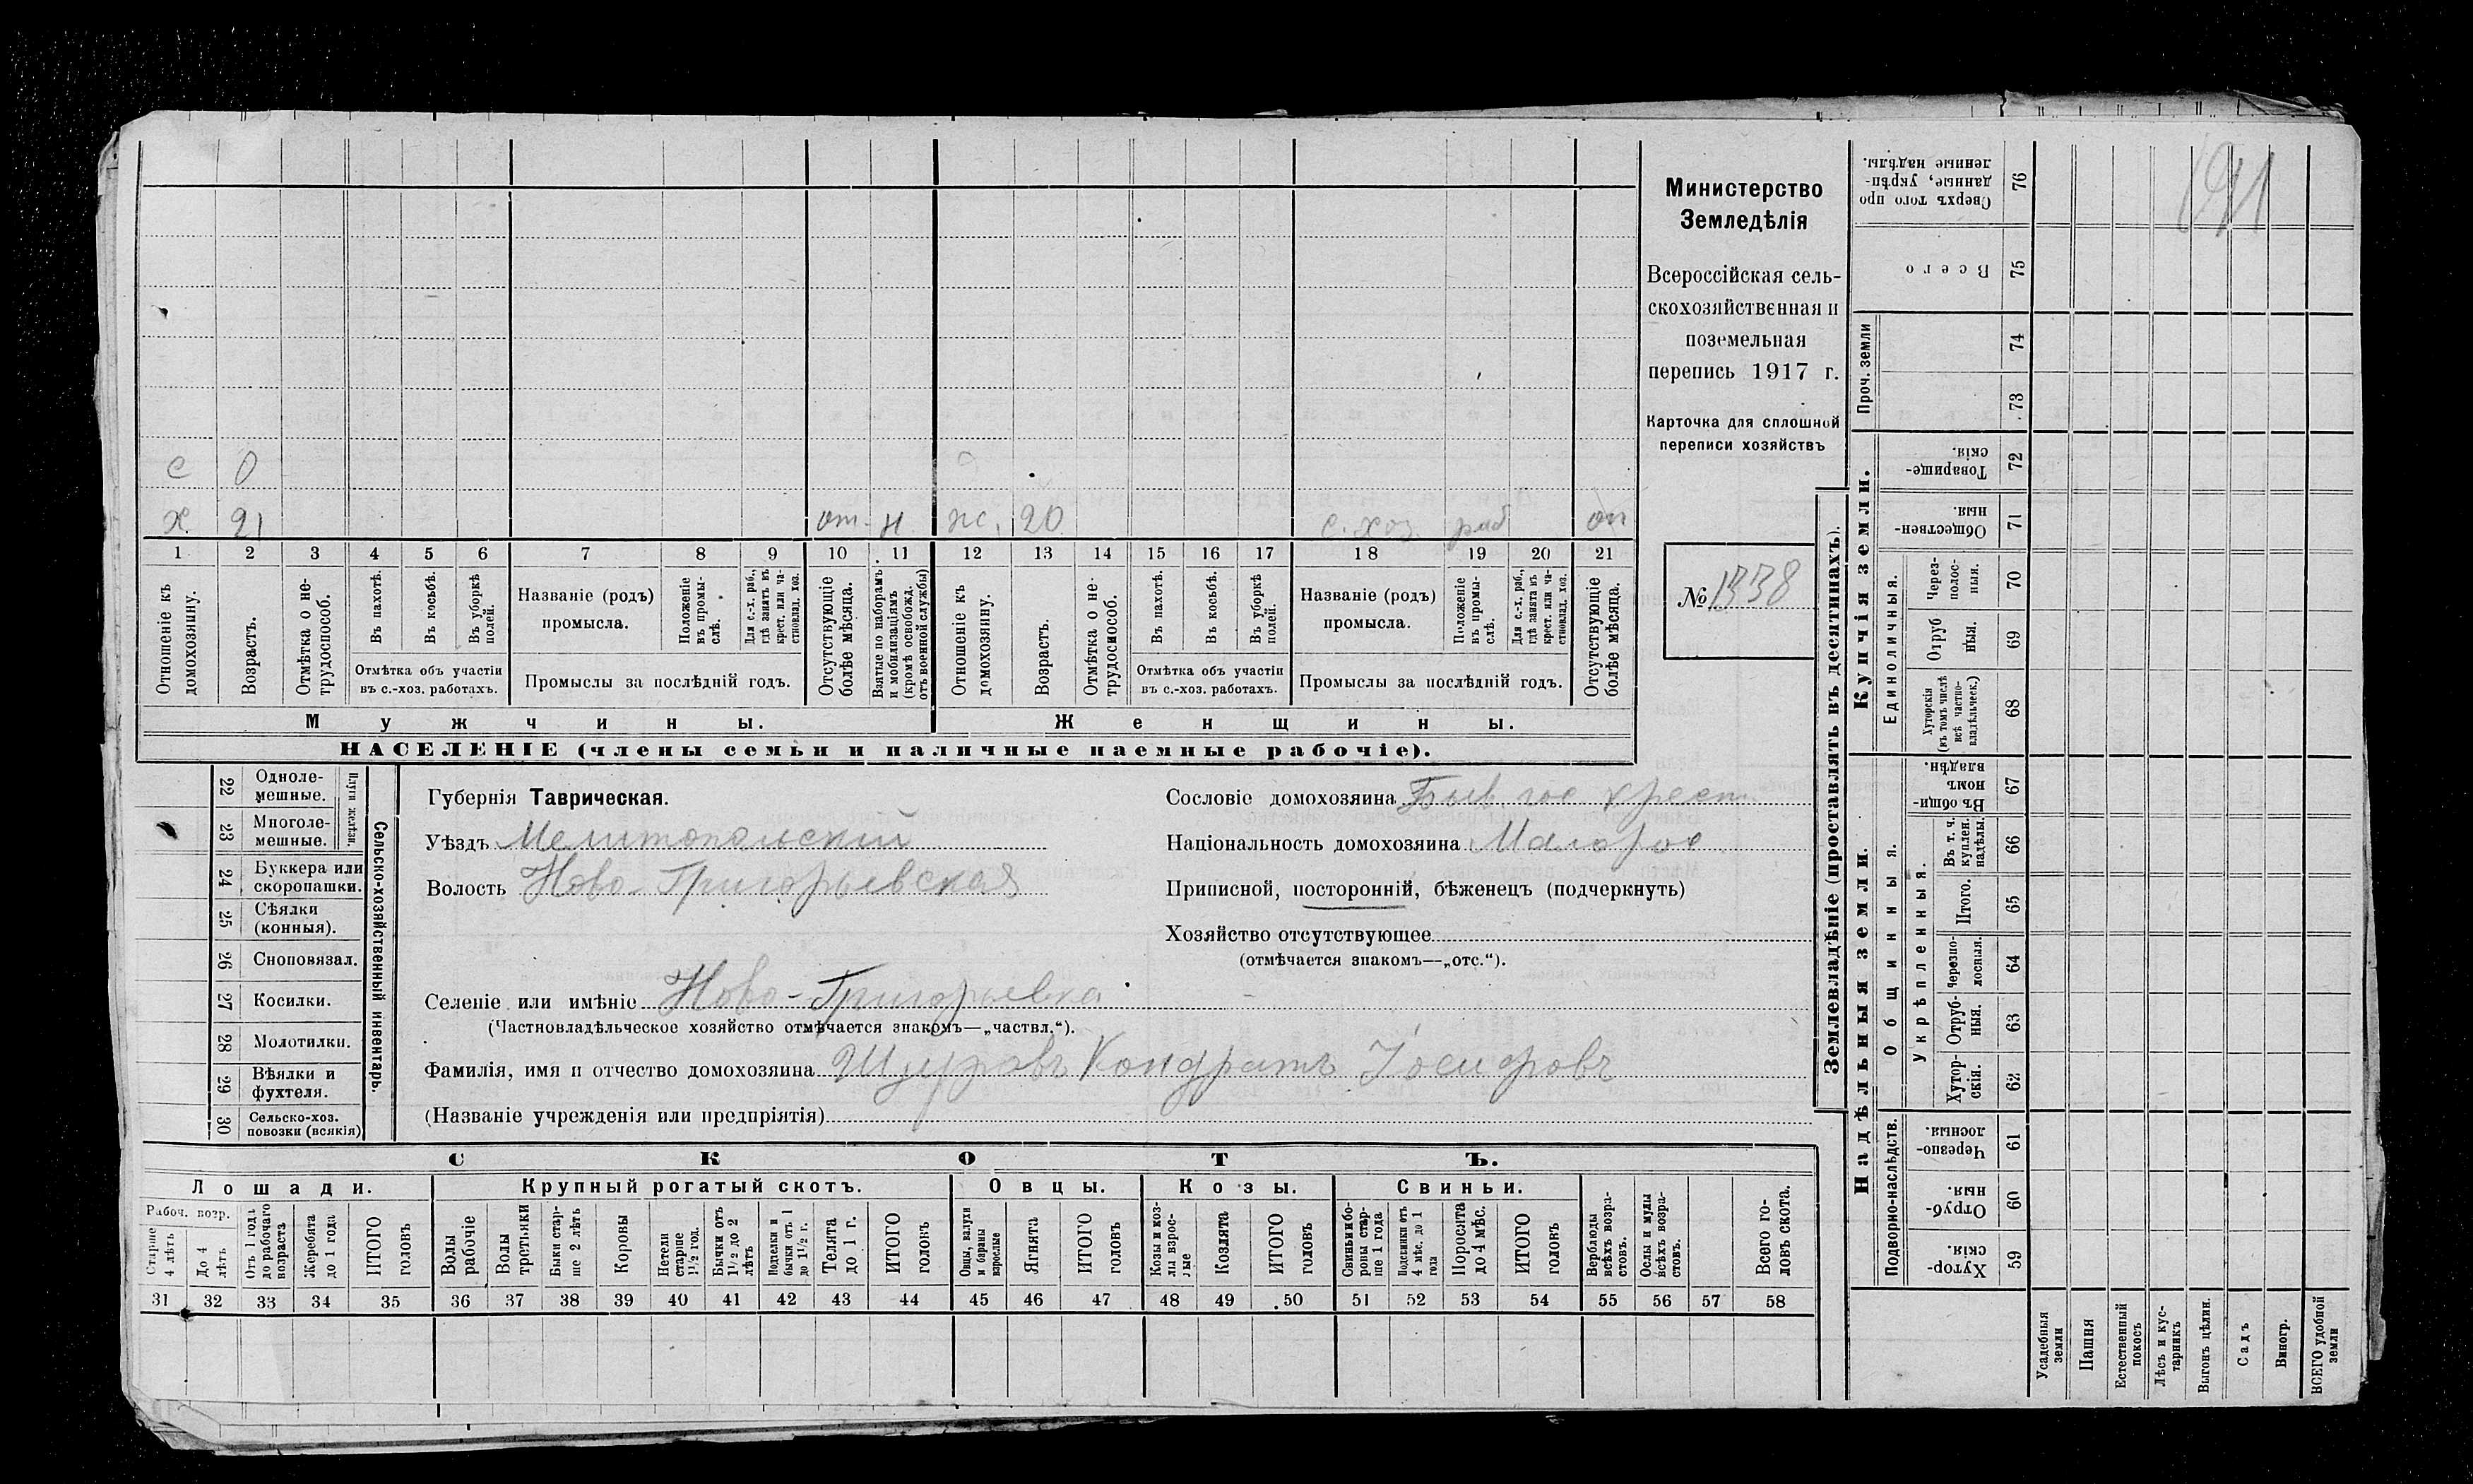 191
Министерство
Земледѣлія
Всероссійская сель-
скохозяйственная и
поземельная
перепись 1917 г.
Карточка для сплошной
переписи хозяйствъ
№ 1338
с 0
х. 21 от. н ж. 20 с. хоз. раб оп
1 2 3 4 5 6 7 8 9 10 11 12 13 14 15 16 17 18 19 20 21
Отношеніе къ домохозяину.
Возрастъ.
Отмѣтка о не-трудоспособ.
Въ пахотѣ.
Въ косьбѣ.
Въ уборкѣ полей.
Отмѣтка объ участіи
въ с.-хоз. работахъ.
Названіе (родъ)
промысла.
Положеніе въ промы-слѣ.
Для с.-х. раб., гдѣ занятъ въ крест. или ча-стновлад. хоз.
Промыслы за послѣдній годъ.
Отсутствующіе болѣе мѣсяца.
Взятые по наборамъ и мобилизаціямъ (кромѣ освобожд. отъ военной службы)
Отношеніе къ домохозяину.
Возрастъ.
Отмѣтка о не-трудоспособ.
Въ пахотѣ.
Въ косьбѣ.
Въ уборкѣ полей.
Отмѣтка объ участіи
въ с.-хоз. работахъ.
Названіе (родъ)
промысла.
Положеніе въ промы-слѣ.
Для с.-х. раб., гдѣ занята въ крест. или ча-стновлад. хоз.
Промыслы за послѣдній годъ.
Отсутствующіе болѣе мѣсяца.
Мужчины. Женщины.
НАСЕЛЕНІЕ (члены семьи и наличные наемные рабочіе).
Сельско-хозяйственный инвентарь.
Плуги желѣзн.
22 Одноле-мешные.
23 Многоле-мешные.
24 Буккера или скоропашки.
25 Сѣялки (конныя).
26 Сноповязал.
27 Косилки.
28 Молотилки.
29 Вѣялки и фухтеля.
30 Сельско-хоз. повозки (всякія)
Губернія Таврическая.
Уѣздъ Мелитопольскій
Волость Ново-Григорьевская
Сословіе домохозяина Быв. гос. крест.
Національность домохозяина Малорос
Приписной, посторонній, бѣженецъ (подчеркнуть)
Хозяйство отсутствующее
(отмѣчается знакомъ—„отс.“).
Селеніе или имѣніе Ново-Григорьевка
(Частновладѣльческое хозяйство отмѣчается знакомъ—„частвл.“).
Фамилія, имя и отчество домохозяина Щуровъ Кондратъ Іосифовъ
(Названіе учрежденія или предпріятія)
СКОТЪ.
Лошади. Крупный рогатый скотъ. Овцы. Козы. Свиньи.
Рабоч. возр.
Старше 4 лѣтъ
До 4 лѣтъ
Отъ 1 года до рабочаго возраста
Жеребята до 1 года
ИТОГО головъ
Волы рабочіе
Волы третьяки
Быки стар-ше 2 лѣтъ
Коровы
Нетели старше 1½ год.
Бычки отъ 1½ до 2 лѣтъ
Подтелки и бычки отъ 1 до 1½ г.
Телята до 1 г.
ИТОГО головъ
Овцы, валухи и бараны взрослые
Ягнята
ИТОГО головъ
Козы и коз-лы взрос-лые
Козлята
ИТОГО головъ
Свиньи и бо-ровы стар-ше 1 года
Подсвинки отъ 4 мѣс. до 1 года
Поросята до 4 мѣс.
ИТОГО головъ
Верблюды всѣхъ возра-стовъ.
Ослы и мулы всѣхъ возра-стовъ.
Всего го-ловъ скота.
31 32 33 34 35 36 37 38 39 40 41 42 43 44 45 46 47 48 49 50 51 52 53 54 55 56 57 58
Землевладѣніе (проставлять въ десятинахъ).
Надѣльныя земли. Купчія земли. Проч. земли
Подворно-наслѣдств.
Общинныя.
Укрѣпленныя.
Единоличныя.
Сверхъ того про данные, укрѣп-ленные надѣлы. 76
Всего 75
74
73
Товарище-скія. 72
Обществен-ныя. 71
Через-полос-ныя. 70
Отруб ныя. 69
Хуторскія (въ томъ числѣ всѣ частно-владѣльческ.) 68
Въ общи-номъ владѣн. 67
Въ т. ч. куплен. надѣлы. 66
Итого. 65
Черезпо-лосныя. 64
Отруб-ныя. 63
Хутор-скія. 62
Черезпо-лосныя 61
Отруб-ныя. 60
Хутор-скія. 59
Усадебныя земли
Пашня
Естественный покосъ
Лѣсъ и кус-тарникъ
Выгонъ цѣлин.
Садъ
Виногр.
ВСЕГО удобной земли